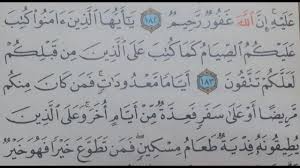 عَلَيْهِ إِنَّ اللَّهَ غَفُورٌ رَّحِيمٌ ١٨٢ يَٰٓأَيُّهَا الَّذِينَ ءَامَنُوا كُتِبَ
عَلَيْكُمُ الصِّيَامُ كَمَا كُتِبَ عَلَى الَّذِينَ مِن قَبْلِكُمْ
لَعَلَّكُمْ تَتَّقُونَ ١٨٣ أَيَّامًا مَّعْدُودَٰتٍ فَمَن كَانَ مِنكُم
مَّرِيضًا أَوْ عَلَىٰ سَفَرٍ فَعِدَّةٌ مِّنْ أَيَّامٍ أُخَرَ وَعَلَى الَّذِينَ
يُطِيقُونَهُ فِدْيَةٌ طَعَامُ مِسْكِينٍ فَمَن تَطَوَّعَ خَيْرًا فَهُوَ خَيْرٌ